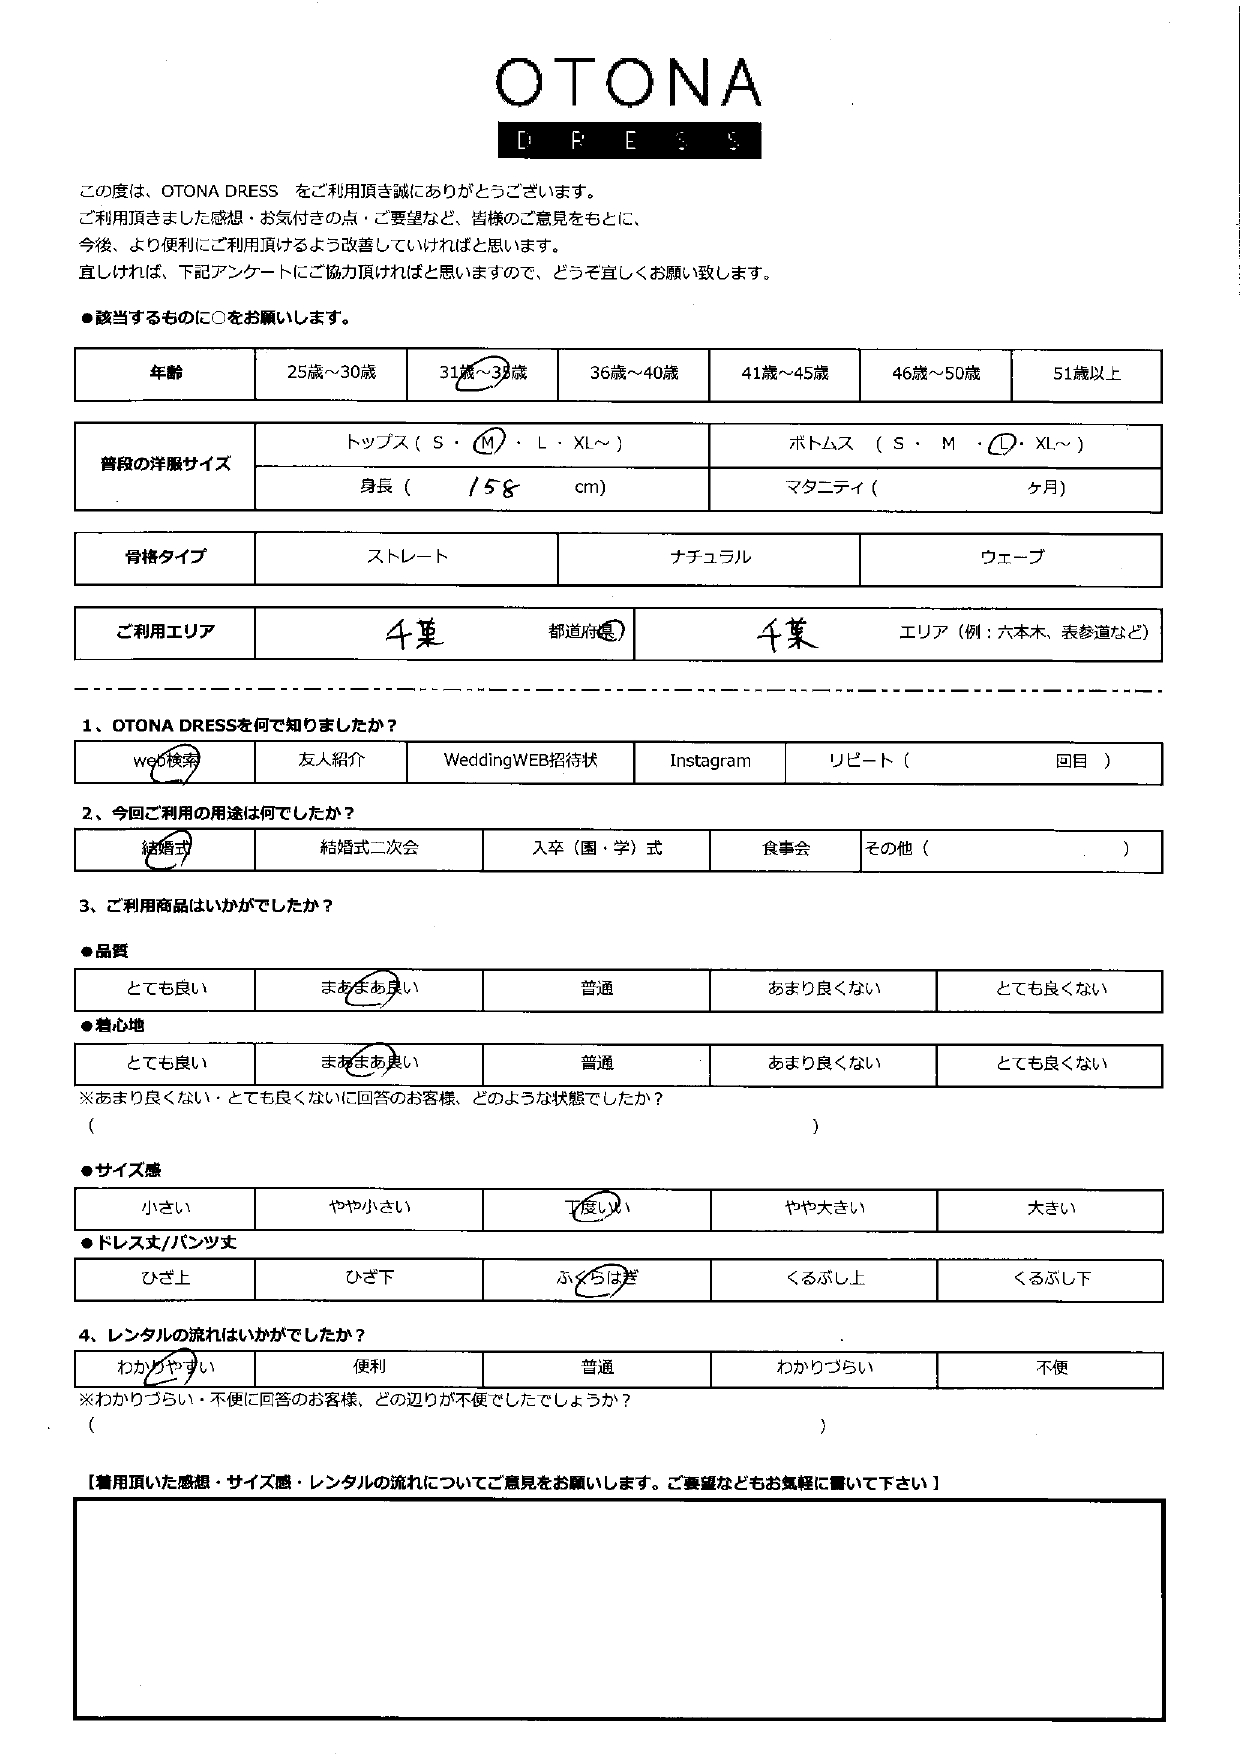 OTONA
DRESS
この度は、OTONA DRESS　をご利用頂き誠にありがとうございます。
ご利用頂きました感想・お気付きの点・ご要望など、皆様のご意見をもとに、
今後、より便利にご利用頂けるよう改善していければと思います。
宜しければ、下記アンケートにご協力頂ければと思いますので、どうぞ宜しくお願い致します。
●該当するものに○をお願いします。
年齢 25歳～30歳 31歳～35歳 36歳～40歳 41歳～45歳 46歳～50歳 51歳以上
普段の洋服サイズ トップス ( S ・ M ・ L ・ XL～ ) ボトムス ( S ・ M ・ L ・ XL～ )
身長 ( 158 cm) マタニティ ( ケ月)
骨格タイプ ストレート ナチュラル ウェーブ
ご利用エリア 千葉 都道府県 千葉 エリア（例：六本木、表参道など）
1、OTONA DRESSを何で知りましたか？
web検索 友人紹介 WeddingWEB招待状 Instagram リピート（ 回目 ）
2、今回ご利用の用途は何でしたか？
結婚式 結婚式二次会 入卒（園・学）式 食事会 その他（ ）
3、ご利用商品はいかがでしたか？
●品質
とても良い まあまあ良い 普通 あまり良くない とても良くない
●着心地
とても良い まあまあ良い 普通 あまり良くない とても良くない
※あまり良くない・とても良くないに回答のお客様、どのような状態でしたか？
( )
●サイズ感
小さい やや小さい 丁度いい やや大きい 大きい
●ドレス丈/パンツ丈
ひざ上 ひざ下 ふくらはぎ くるぶし上 くるぶし下
4、レンタルの流れはいかがでしたか？
わかりやすい 便利 普通 わかりづらい 不便
※わかりづらい・不便に回答のお客様、どの辺りが不便でしたでしょうか？
( )
【着用頂いた感想・サイズ感・レンタルの流れについてご意見をお願いします。ご要望などもお気軽に書いて下さい 】